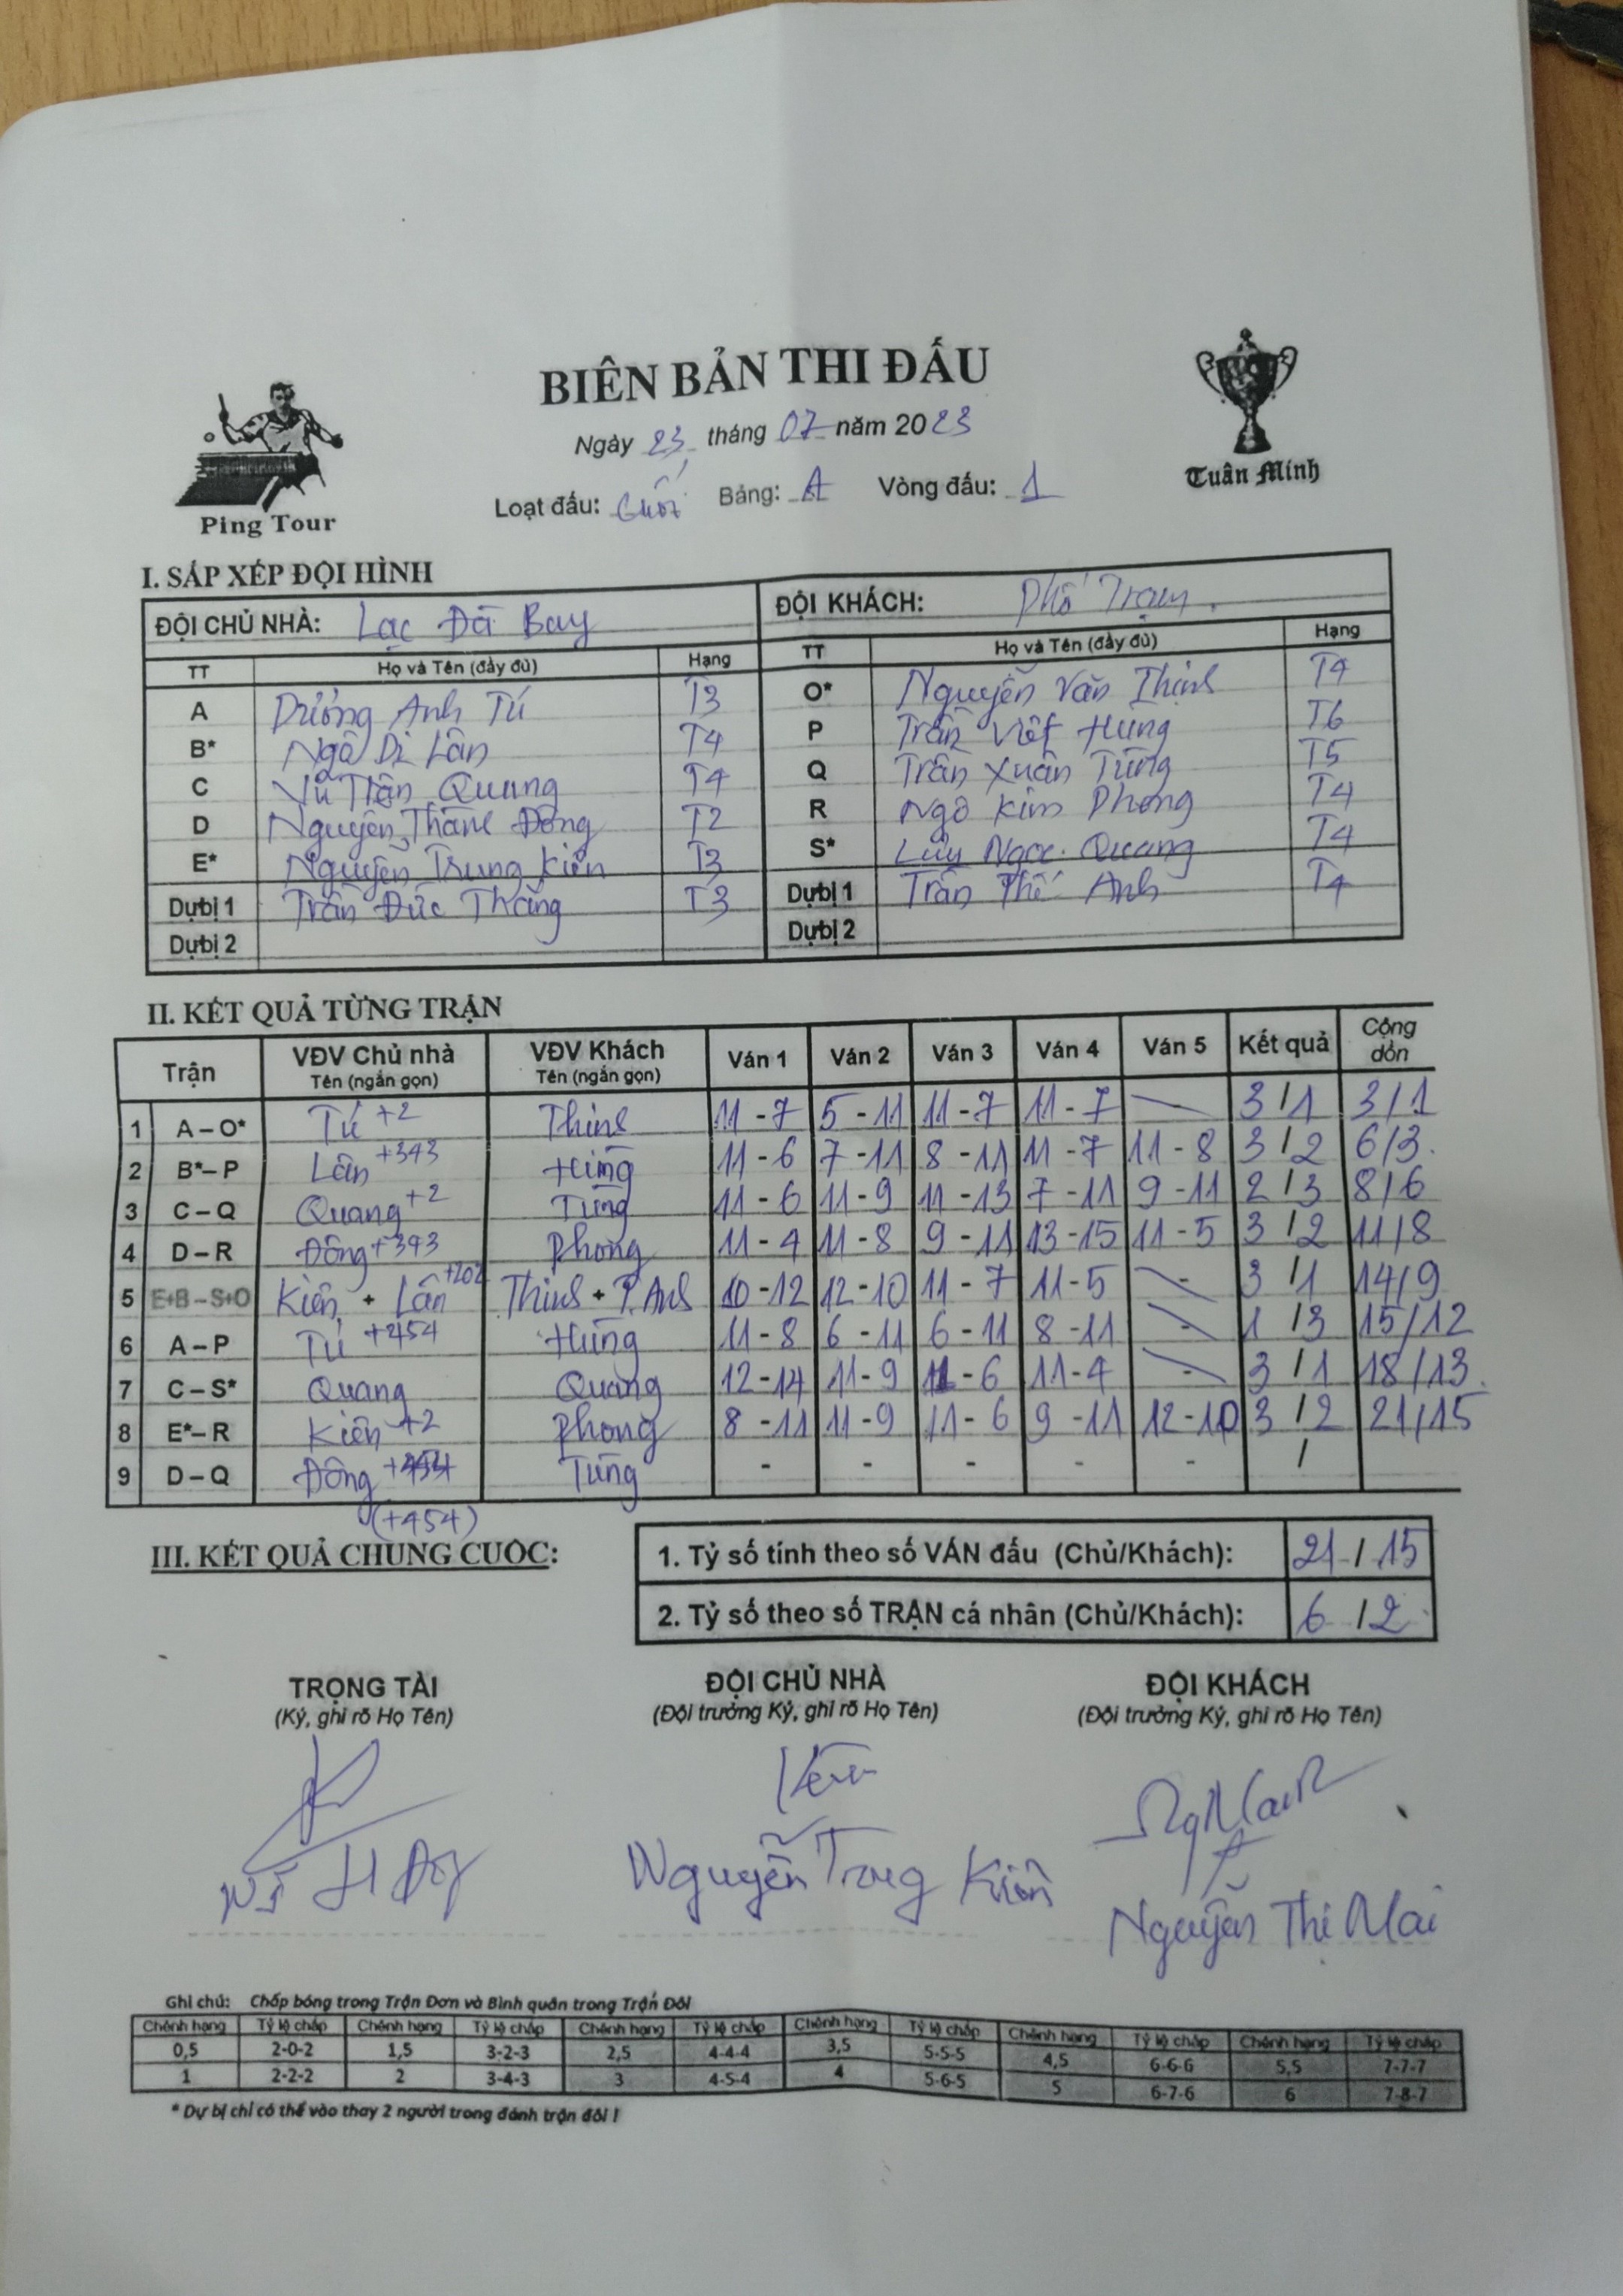 BIÊN BẢN THI ĐẤU
Ngày 23 tháng 07 năm 2023
Loạt đấu: Cuối Bảng: A Vòng đấu: 1
Ping Tour
Tuân Minh
I. SẮP XẾP ĐỘI HÌNH
ĐỘI CHỦ NHÀ: Lạc Đà Bay ĐỘI KHÁCH: Phố Trạm.
TT Họ và Tên (đầy đủ) Hạng TT Họ và Tên (đầy đủ) Hạng
A Dương Anh Tú T3 O* Nguyễn Văn Thịnh T4
B* Ngô Di Lân T4 P Trần Việt Hưng T6
C Vũ Quang T4 Q Trần Xuân Tùng T5
D Nguyễn Thành Đông T2 R Ngô Kim Phong T4
E* Nguyễn Trung Kiên T3 S* Lưu Ngọc Quang T4
Dự bị 1 Trần Đức Thắng T3 Dự bị 1 Trần Thế Anh T4
Dự bị 2 Dự bị 2
II. KẾT QUẢ TỪNG TRẬN
Trận VĐV Chủ nhà Tên (ngắn gọn) VĐV Khách Tên (ngắn gọn) Ván 1 Ván 2 Ván 3 Ván 4 Ván 5 Kết quả Cộng dồn
1 A – O* Tú +2 Thịnh 11 - 7 5 - 11 11 - 7 11 - 7 - 3 / 1 3/1
2 B* – P Lân +343 Hưng 11 - 6 7 - 11 8 - 11 11 - 7 11 - 8 3 / 2 6/3.
3 C – Q Quang +2 Tùng 11 - 6 11 - 9 11 - 13 7 - 11 9 - 11 2 / 3 8/6
4 D – R Đông +343 Phong 11 - 4 11 - 8 9 - 11 13 - 15 11 - 5 3 / 2 11/8
5 E+B – S+O Kiên + Lân +202 Thịnh + T.Anh 10 - 12 12 - 10 11 - 7 11 - 5 - 3 / 1 14/9
6 A – P Tú +454 Hưng 11 - 8 6 - 11 6 - 11 8 - 11 - 1 / 3 15/12
7 C – S* Quang Quang 12 - 14 11 - 9 11 - 6 11 - 4 - 3 / 1 18/13.
8 E* – R Kiên +2 Phong 8 - 11 11 - 9 11 - 6 9 - 11 12 - 10 3 / 2 21/15
9 D – Q Đông Tùng - - - - - /
(+454)
III. KẾT QUẢ CHUNG CUỘC:
1. Tỷ số tính theo số VÁN đấu (Chủ/Khách): 21 / 15
2. Tỷ số theo số TRẬN cá nhân (Chủ/Khách): 6 / 2
TRỌNG TÀI ĐỘI CHỦ NHÀ ĐỘI KHÁCH
(Ký, ghi rõ Họ Tên) (Đội trưởng Ký, ghi rõ Họ Tên) (Đội trưởng Ký, ghi rõ Họ Tên)
Nguyễn Trung Kiên
Nguyễn Thị Mai
Ghi chú: Chấp bóng trong Trận Đơn và Bình quân trong Trận Đôi
Chênh hạng Tỷ lệ chấp Chênh hạng Tỷ lệ chấp Chênh hạng Tỷ lệ chấp Chênh hạng Tỷ lệ chấp Chênh hạng Tỷ lệ chấp Chênh hạng Tỷ lệ chấp
0,5 2-0-2 1,5 3-2-3 2,5 4-4-4 3,5 5-5-5 4,5 6-6-6 5,5 7-7-7
1 2-2-2 2 3-4-3 3 4-5-4 4 5-6-5 5 6-7-6 6 7-8-7
* Dự bị chỉ có thể vào thay 2 người trong đánh trận đôi !